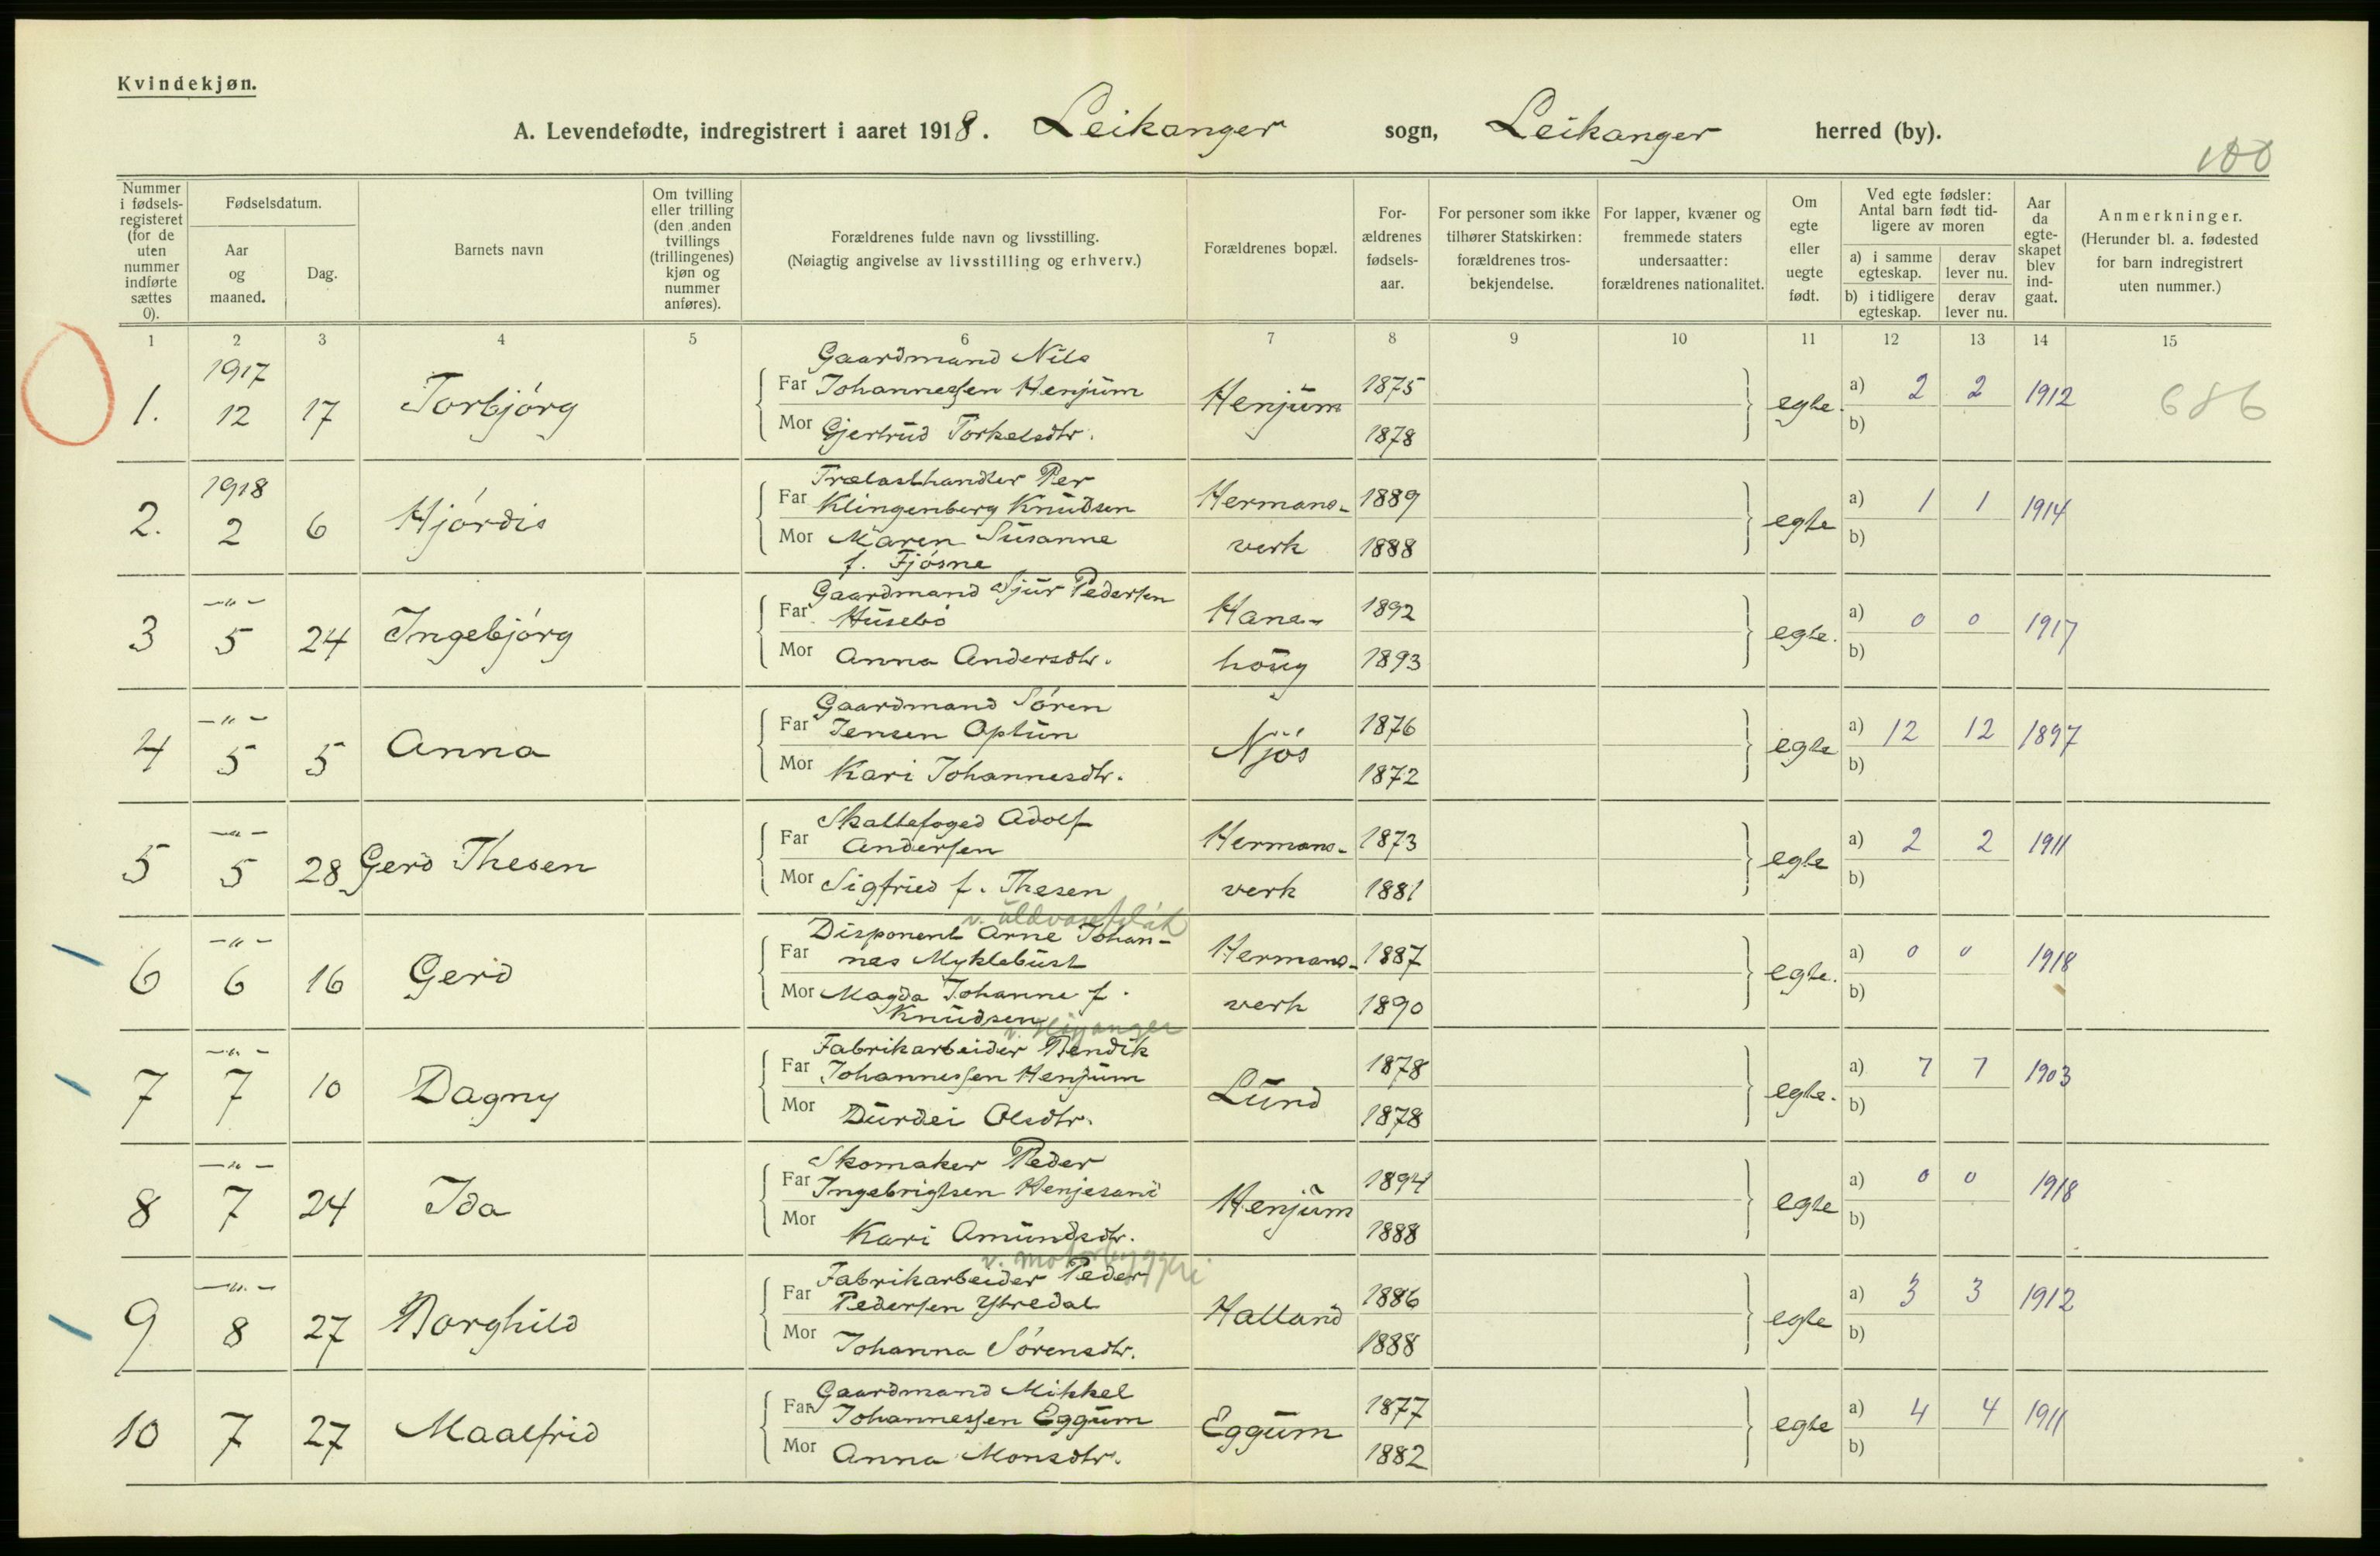 Kvindekjøn.
A. Levendefødte, indregistrert i aaret 1918. Leikanger sogn, Leikanger herred (by).
100
Nummer i fødsels-registeret (for de uten nummer indførte sættes 0).
Fødselsdatum.
Aar og maaned.
Dag.
Barnets navn
Om tvilling eller trilling (den anden tvillings (trillingenes) kjøn og nummer anføres).
Forældrenes fulde navn og livsstilling.
(Nøiagtig angivelse av livsstilling og erhverv.)
Forældrenes bopæl.
For-ældrenes fødsels-aar.
For personer som ikke tilhører Statskirken: forældrenes tros-bekjendelse.
For lapper, kvæner og fremmede staters undersaatter: forældrenes nationalitet.
Om egte eller uegte født.
Ved egte fødsler: Antal barn født tid-ligere av moren
a) i samme egteskap. derav lever nu.
b) i tidligere egteskap. derav lever nu.
Aar da egte-skapet blev ind-gaat.
Anmerkninger.
(Herunder bl. a. fødested for barn indregistrert uten nummer.)
1 2 3 4 5 6 7 8 9 10 11 12 13 14 15
1917
Gaardmand Nils
1. 12 17 Torbjórg Far Johannessen Henjum Henjum 1875 egte. a) 2 2 1912 686
Mor Gjertrud Torkelsdtr. 1878 b)
1918
Trælasthandler Per
2. 2 6 Hjórdis Far Klingenberg Knudsen Hermans- 1889 egte a) 1 1 1914
Mor Maren Susanne verk 1888 b)
f. Fjósne
-"- Gaardmand Sjur Pedersen
3 5 24 Ingebjórg Far Husebó Hane- 1892 egte. a) 0 0 1917
Mor Anna Andersdtr. houg 1893 b)
-"- Gaardmand Sóren
4 5 5 Anna Far Jensen Optun Njós 1876 egte a) 12 12 1897
Mor Kari Johannesdtr. 1872 b)
-"- Skattefoged Adolf
5 5 28 Gerd Thesen Far Andersen Hermans- 1873 egte a) 2 2 1911
Mor Sigfried f. Thesen verk 1881 b)
v. uldvarefabrik
-"- Disponent Arne Johan-
6 6 16 Gerd Far nes Myklebust Hermans- 1887 egte. a) 0 0 1918
Mor Magda Johanne f. verk 1890 b)
Knudsen
v. Höyanger
-"- Fabrikarbeider Bendik
7 7 10 Dagny Far Johannessen Henjum Lund 1878 egte. a) 7 7 1903
Mor Durdei Olsdtr. 1878 b)
-"- Skomaker Peder
8 7 24 Ida Far Ingebrigtsen Henjesand Henjum 1894 egte a) 0 0 1918
Mor Kari Amundsdtr. 1888 b)
v. motorbyggeri
-"- Fabrikarbeider Peder
9 8 27 Borghild Far Pedersen Ytredal Halland 1886 egte a) 3 3 1912
Mor Johanna Sórensdtr. 1888 b)
Gaardmand Mikkel
10 7 27 Maalfrid Far Johannessen Eggum Eggum 1877 egte a) 4 4 1911
Mor Anna Monsdtr. 1882 b)